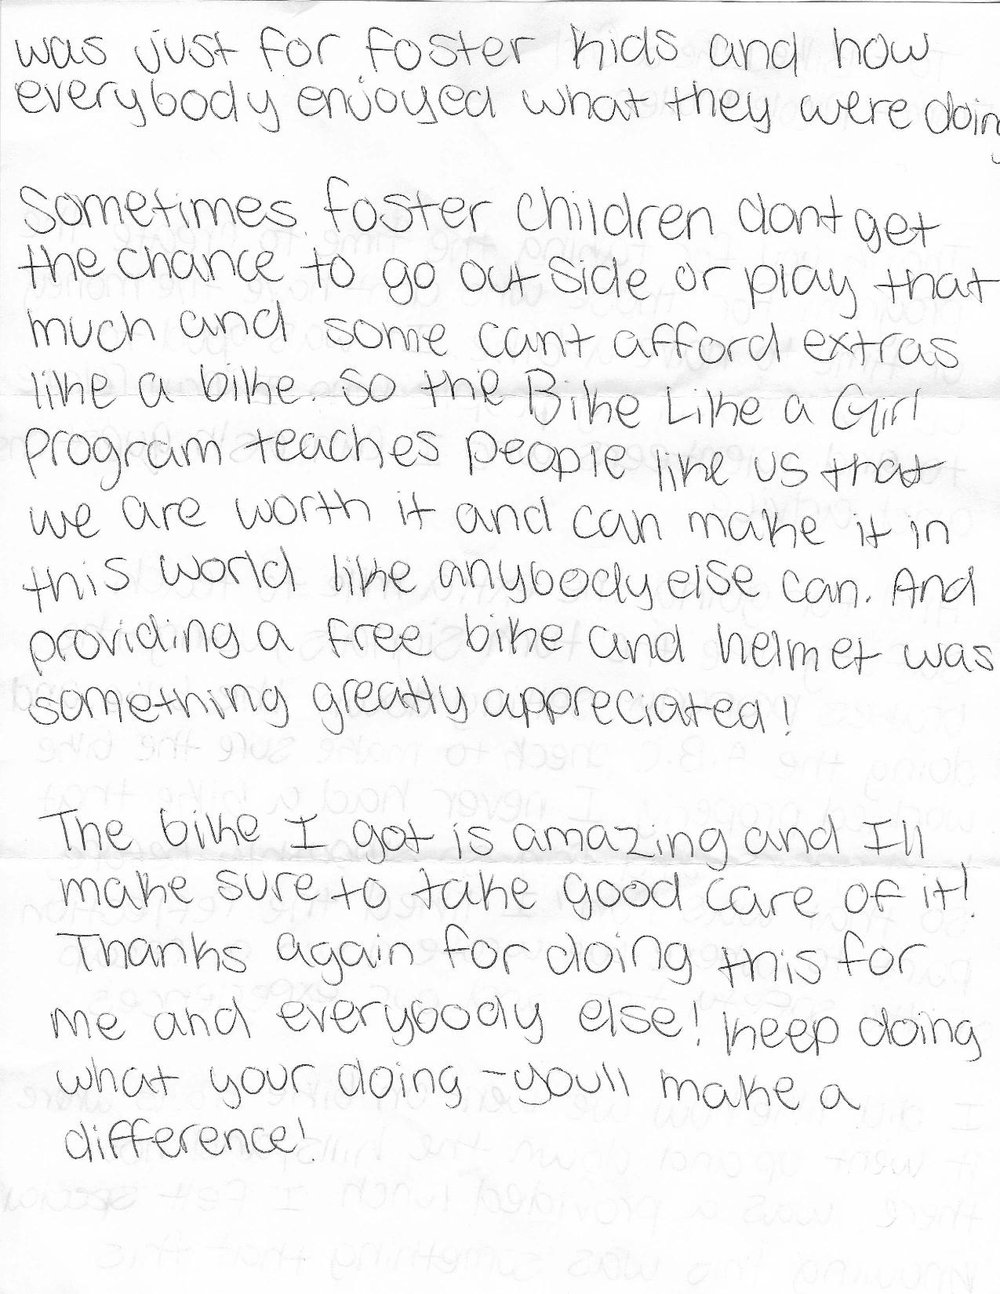 was just for foster kids and how
everybody enjoyed what they were doing
Sometimes foster children dont get
the chance to go out side or play that
much and some cant afford extras
like a bike. So the Bike Like a Girl
program teaches people like us that
we are worth it and can make it in
this world like anybody else can. And
providing a free bike and helmet was
something greatly appreciated!
The bike I got is amazing and I'll
make sure to take good care of it!
Thanks again for doing this for
me and everybody else! Keep doing
what your doing - you'll make a
difference!